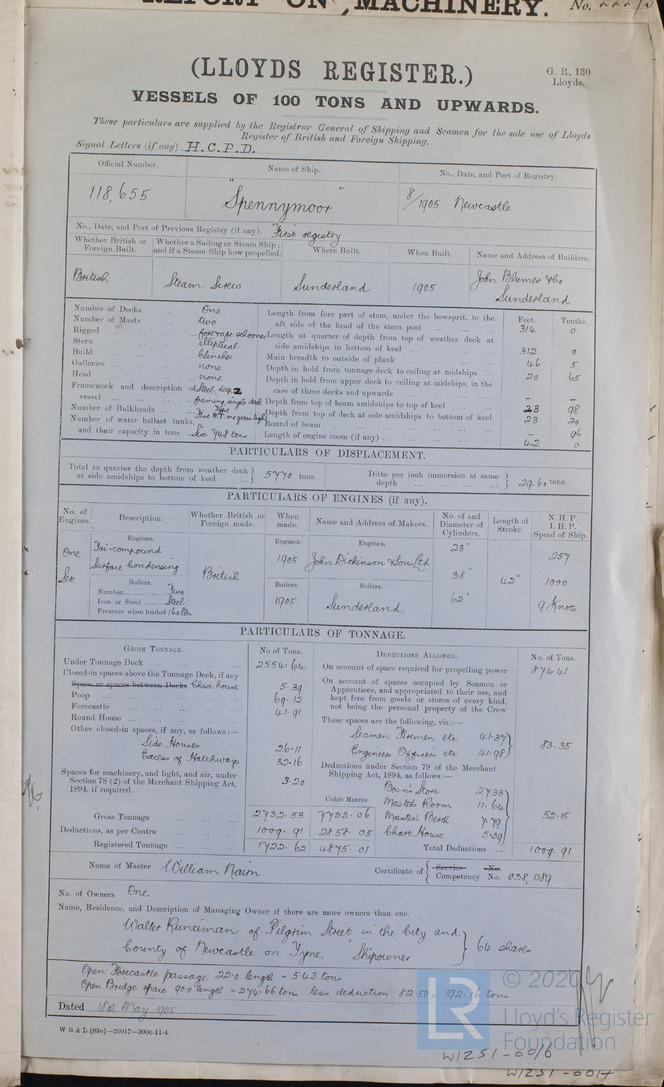 REPORT ON MACHINERY. No.
(LLOYDS REGISTER.)
G. R. 130
Lloyds.
VESSELS OF 100 TONS AND UPWARDS.
These particulars are supplied by the Registrar General of Shipping and Seamen for the sole use of Lloyds
Register of British and Foreign Shipping.
Signal Letters (if any) H.C.P.D.
Official Number. Name of Ship. No., Date, and Port of Registry.
118,655 "Spennymoor" 8/1905 Newcastle
No., Date, and Port of Previous Registry (if any). First registry
Whether British or Foreign Built. Whether a Sailing or Steam Ship; and if a Steam Ship how propelled. Where Built. When Built. Name and Address of Builders.
British Steam Screw Sunderland 1905 John Blumer & Co
Sunderland
Feet. Tenths.
Number of Decks One Length from fore part of stem, under the bowsprit, to the
Number of Masts two aft side of the head of the stern post 314 0
Rigged fore & aft schooner Length at quarter of depth from top of weather deck at
Stern elliptical side amidships to bottom of keel 312 0
Build clincher Main breadth to outside of plank 46 5
Galleries none Depth in hold from tonnage deck to ceiling at midships 20 65
Head none Depth in hold from upper deck to ceiling at midships, in the
Framework and description of vessel Steel, deep framing, single deck Type case of three decks and upwards - -
Depth from top of beam amidships to top of keel 23 98
Number of Bulkheads Five Depth from top of deck at side amidships to bottom of keel 23 20
Number of water ballast tanks, Round of beam - 96
and their capacity in tons Six 748 tons Length of engine room (if any) 42 0
PARTICULARS OF DISPLACEMENT.
Total to quarter the depth from weather deck at side amidships to bottom of keel 5770 tons. Ditto per inch immersion at same depth 29.60 tons.
PARTICULARS OF ENGINES (if any).
No. of Engines. Description. Whether British or Foreign made. When made. Name and Address of Makers. No. of and Diameter of Cylinders. Length of Stroke. N. H. P. I. H. P. Speed of Ship.
Engines. Engines. Engines.
One Tri-compound 23" 257
Surface Condensing 1905 John Dickinson & Sons Ltd
Set Boilers. British Boilers Boilers. 38" 42" 1000
Number Two
Iron or Steel Steel 1905 Sunderland. 62" 9 Knots
Pressure when loaded 160 lbs
PARTICULARS OF TONNAGE.
GROSS TONNAGE. No of Tons. DEDUCTIONS ALLOWED. No. of Tons.
Under Tonnage Deck 2554.64 On account of space required for propelling power 874.41
Closed-in spaces above the Tonnage Deck, if any On account of spaces occupied by Seamen or
Space or spaces between Decks Chart house 5.39 Apprentices, and appropriated to their use, and
Poop 69.12 kept free from goods or stores of every kind,
Forecastle 41.91 not being the personal property of the Crew
Round House These spaces are the following, viz.:—
Other closed-in spaces, if any, as follows:— Seamen Firemen etc 41.37
Side Houses 26.11 Engineers Officers etc 41.98 83.35
Excess of Hatchways 32.16 Deductions under Section 79 of the Merchant
Spaces for machinery, and light, and air, under Shipping Act, 1894, as follows:—
Section 78 (2) of the Merchant Shipping Act, 3.20 Bosn's Store 27.33
1894, if required. Cubic Metres Master's Room 11.64
Gross Tonnage 2732.53 7733.06 Master's Berth 7.79 52.15
Deductions, as per Contra 1009.91 2858.05 Chart House 5.39
Registered Tonnage 1722.62 4875.01 Total Deductions 1009.91
Name of Master William Nairn Certificate of Service Competency No. No. 038,089
No. of Owners One
Name, Residence, and Description of Managing Owner if there are more owners than one.
Walter Runciman of Pilgrim Street in the City and
County of Newcastle on Tyne. Shipowner 64 shares
Open Forecastle passage 22.0 length = 5.43 tons
Open Bridge space 90.0 length = 274.66 tons less deduction 82.50 = 192.16 tons
Dated 18th May 1905
W B & L (83o)—20917—2000-11-4
LR
© 2020
Lloyd's Register
Foundation
W1251-0016
W1251-0017